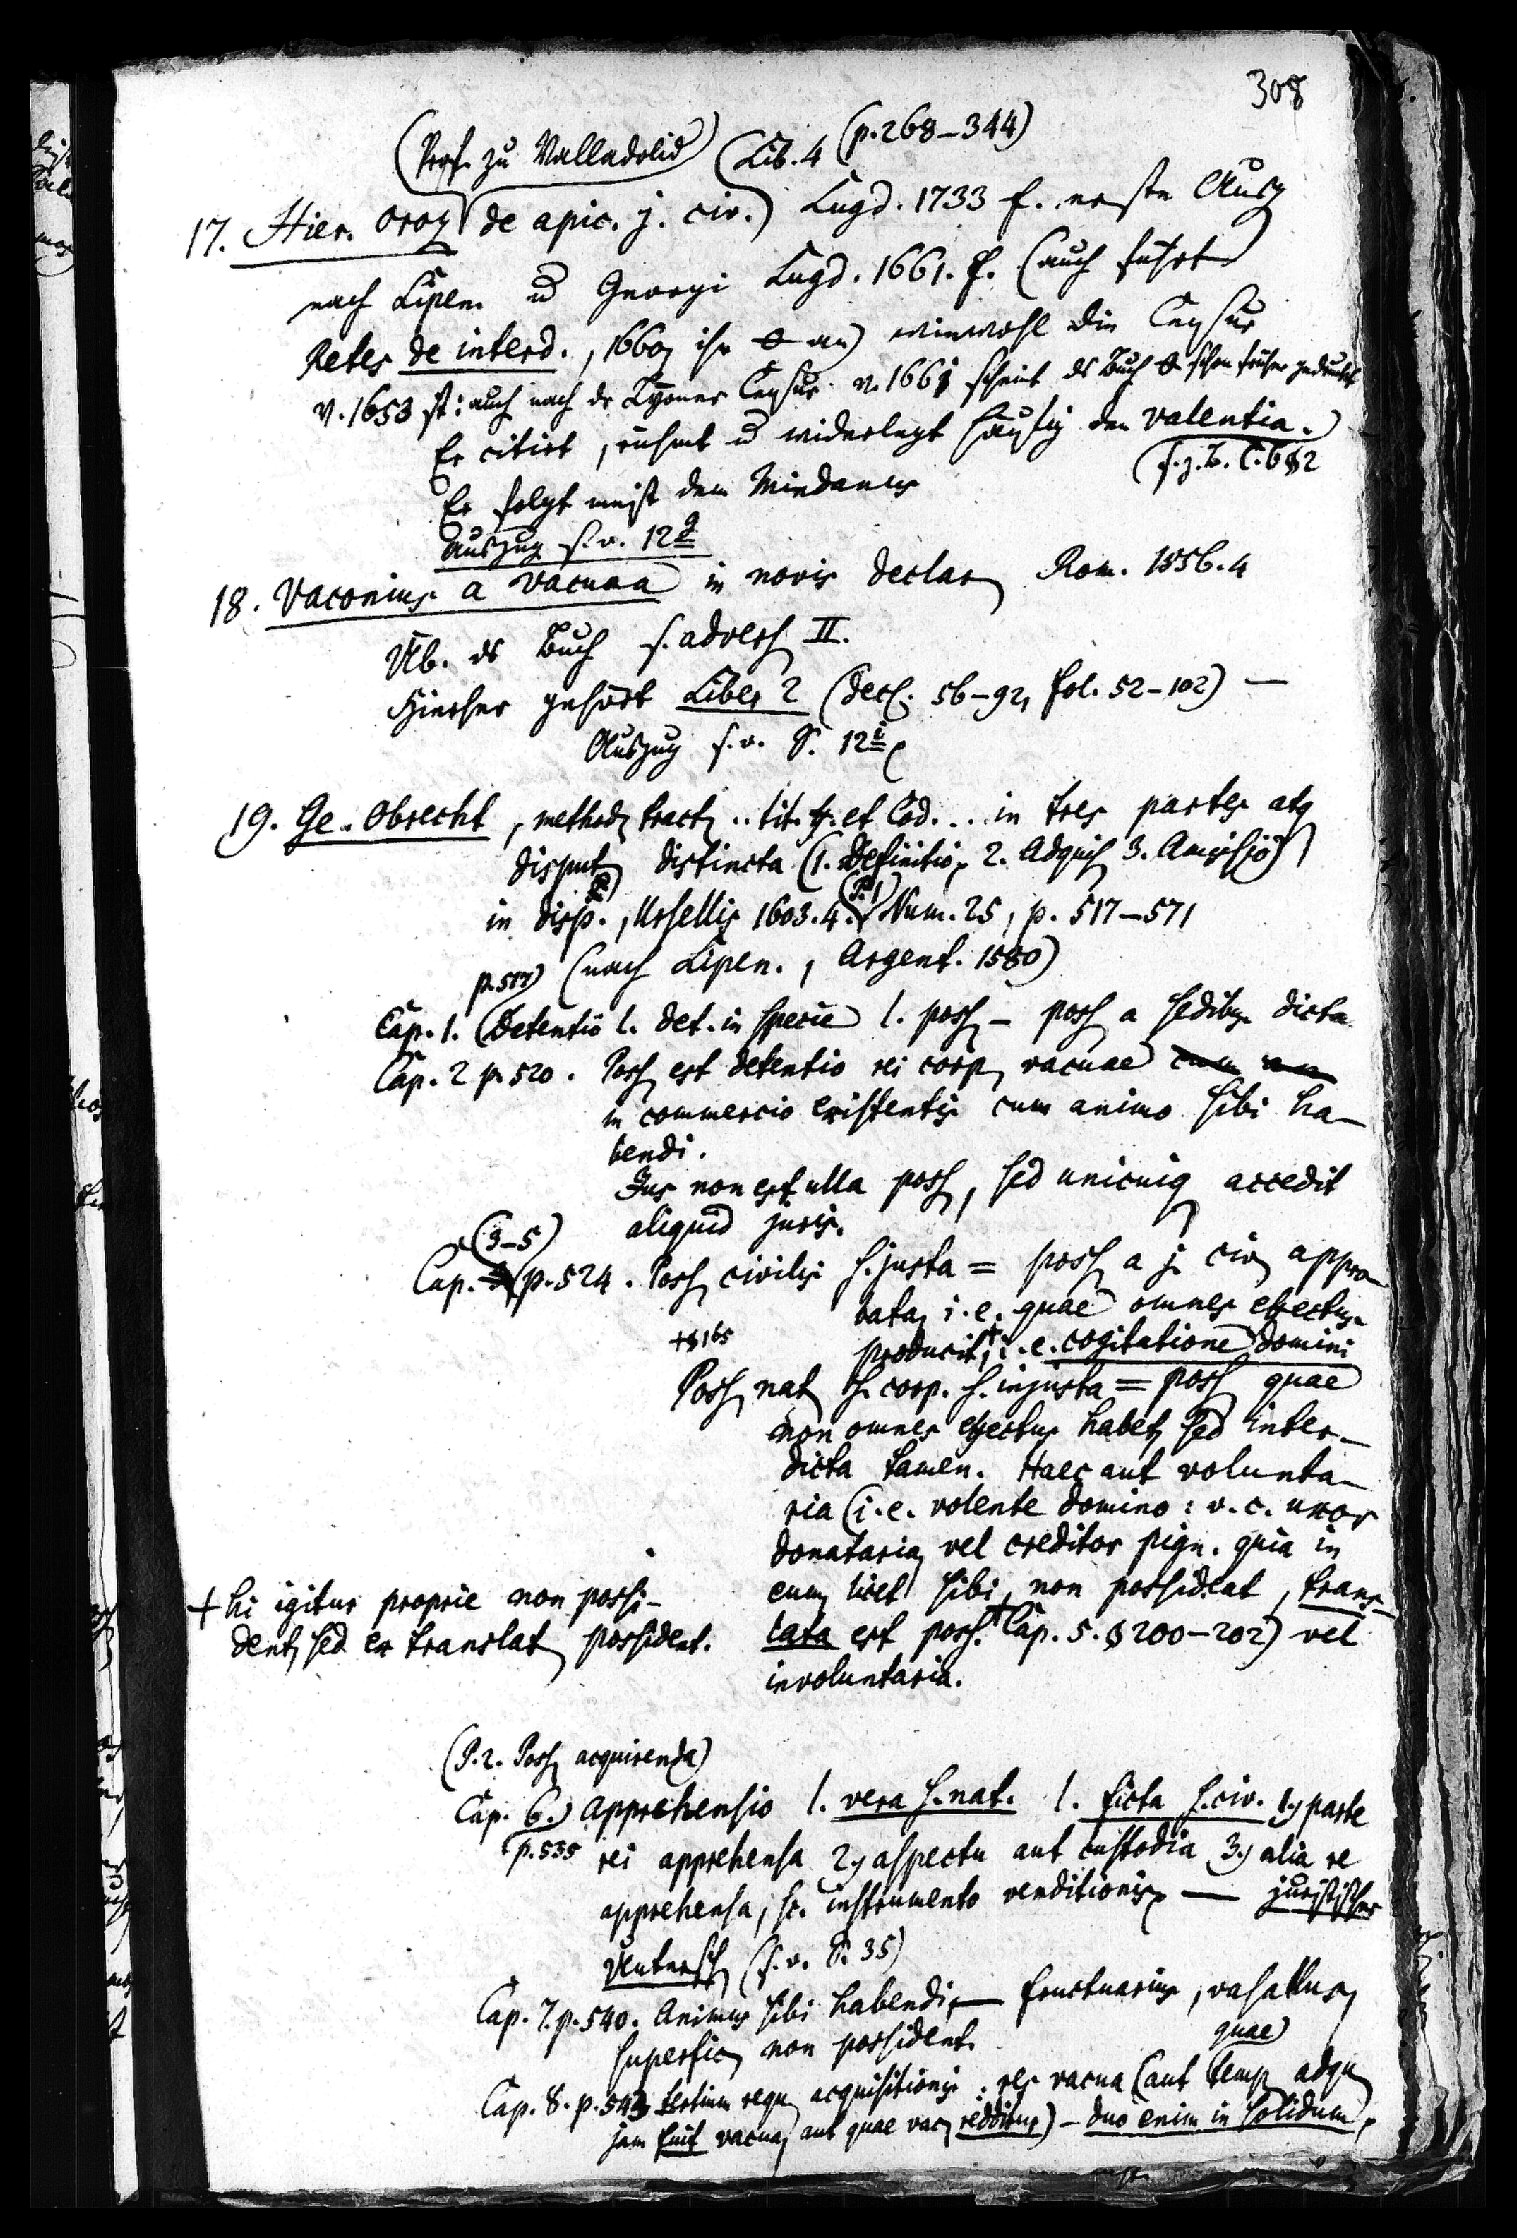 308
(Prof. zu Valladolid) (Lib. 4 (p. 268–344)
17. Hier. Oroz (de apic. j. civ.) Lugd. 1733 f. erste Ausg
nach Lipen. u Georgi Lugd. 1661. f. (auch führt
Retes de interd., 1660, ihn an) wiewohl die Censur
v. 1653 ist: auch nach der Lyoner Censur v. 1661 scheint ds Buch schon früher gedruckt
Er citirt, rühmt u widerlegt häufig den Valentia.
(s. z. B. C. 682
Er folgt meist dem Mindanus
Auszug s. v. 12g
18. Vaconius a Vacuna in novis declar Rom. 1556. 4
Üb. ds Buch s. advers II.
Hierher gehört Liber 2 (Decl. 56–92, fol. 52–102) —
Auszug s. v. S. 12i
19. Ge. Obrecht, method tract .. tit. ff. et Cod. .. in tres partes atq
disput distincta (1. Definitio, 2. Adquis 3. Amissio)
in disp., Ursellis 1603. 4. (P. 1) Num. 25, p. 517–571
(nach Lipen., Argent. 1580)
p. 517)
Cap. 1. (Detentio l. det. in specie l. poss – poss a sedibus dicta
Cap. 2 p. 520. Poss est detentio rei corp vacuae
in commercio existentis cum animo sibi ha-
bendi.
Jus non est ulla poss, sed unicuiq accedit
aliquid juris.
(3–5)
Cap. p. 524. Poss civilis s. justa = poss a j. civ appro-
bata, i. e. quae omnes effectus
producit, + i. e. cogitatione domini
+ § 165
Poss nat s. corp. s. injusta = poss quae
non omnes effectus habet, sed inter-
dicta tamen. Haec aut volunta-
ria (i. e. volente domino: v. c. uxor
donataria, vel creditor pign. quia in
eum, licet sibi non possideat, trans-
lata est poss. + Cap. 5. § 200–202) vel
involuntaria.
+ hi igitur proprie non possi-
dent, sed ex translat possident.
(P. 2. Poss acquirenda)
Cap. 6.) Apprehensio l. vera s. nat. l. ficta s. civ. 1, parte
p. 535 rei apprehensa 2, aspectu aut custodia 3, alia re
apprehensa, sc. instrumento venditionis, — juristischer
Untersch (s. v. S. 35)
Cap. 7. p. 540. Animus sibi habendi, — fructuarius, vasallus,
superfic non possident.
Cap. 8. p. 543 tertium requ acquisitionis: res vacua (aut quae temp adqu
jam fuit vacua, aut quae vac redditur) – duo enim in solidum,